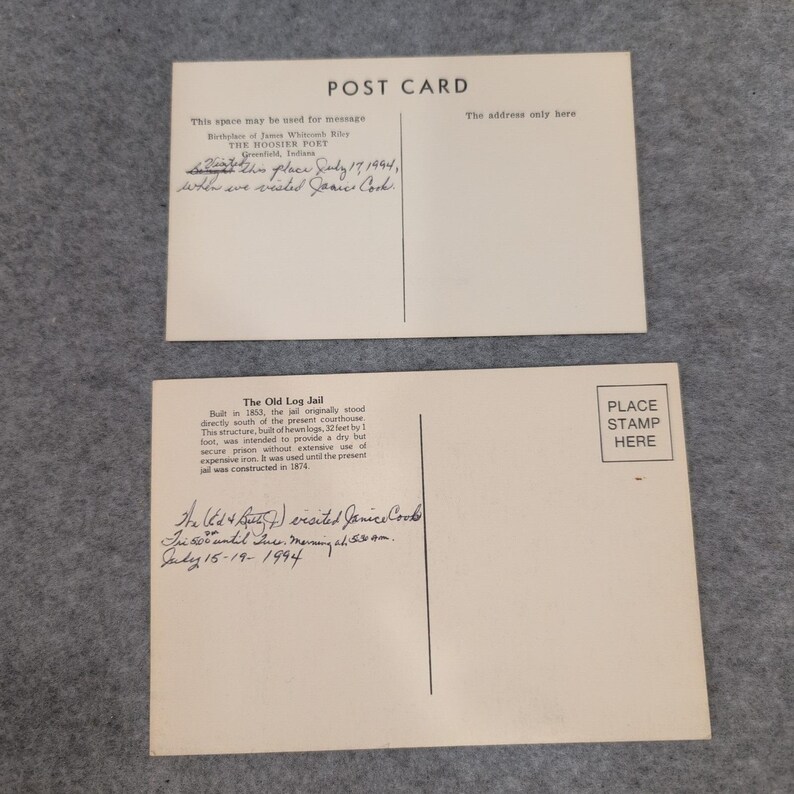 POST CARD
This space may be used for message
The address only here
Birthplace of James Whitcomb Riley
THE HOOSIER POET
Greenfield, Indiana
Visited
this place July 17, 1994,
when we visted Janice Cook.
The Old Log Jail
Built in 1853, the jail originally stood
directly south of the present courthouse.
This structure, built of hewn logs, 32 feet by 1
foot, was intended to provide a dry but
secure prison without extensive use of
expensive iron. It was used until the present
jail was constructed in 1874.
PLACE
STAMP
HERE
(Ed & Ruth J) visited Janice Cook
Fri until Tues. Morning at 5:30 am.
July 15-19- 1994